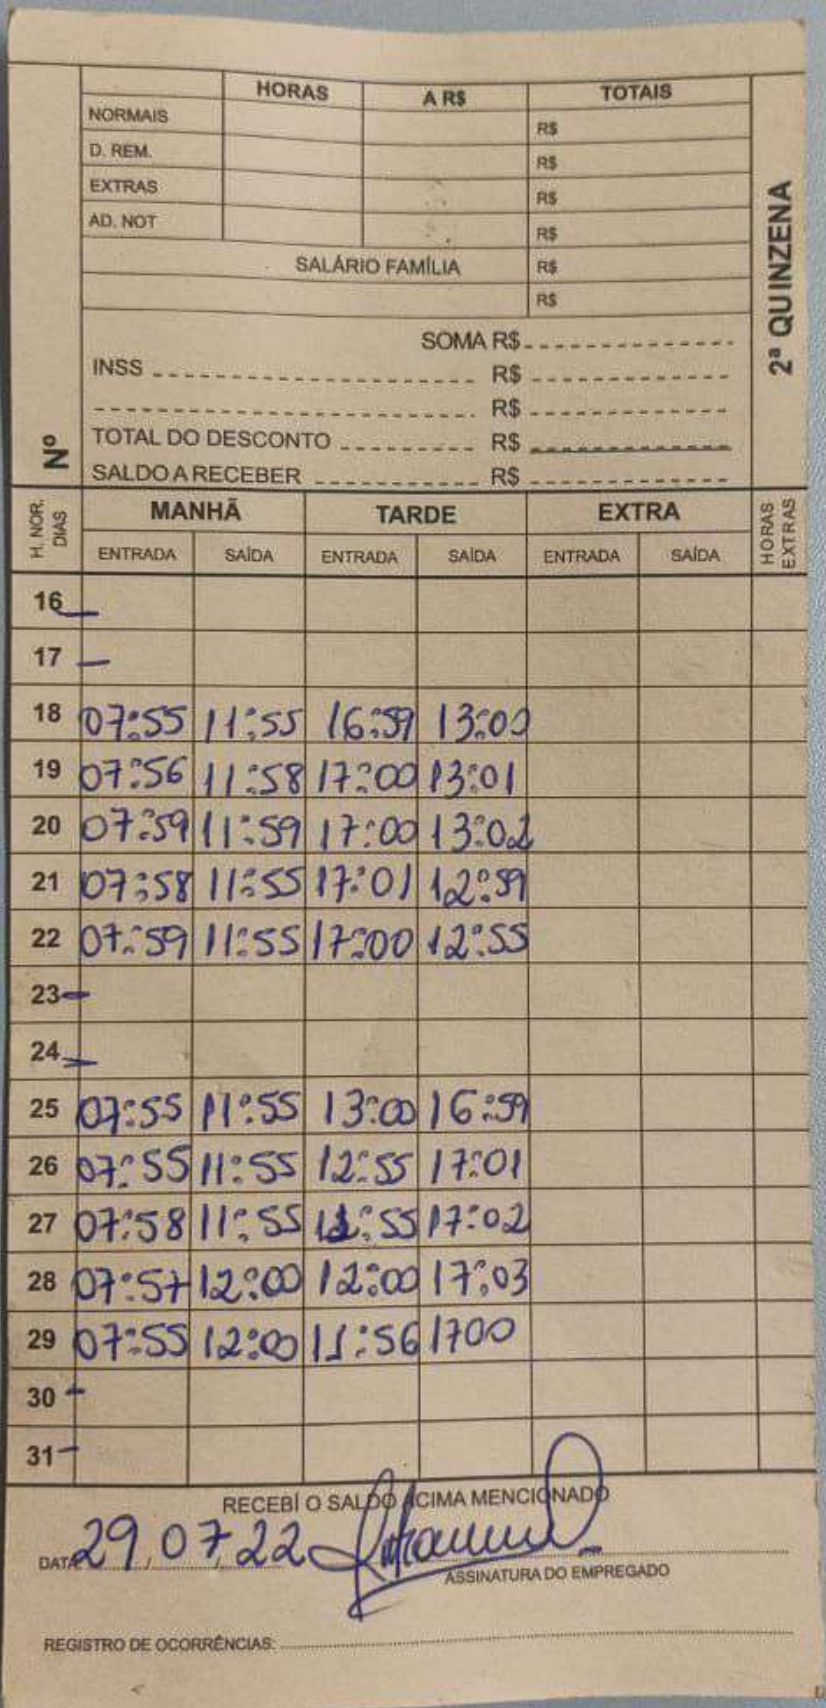 HORAS A R$ TOTAIS
NORMAIS R$
D. REM. R$
EXTRAS R$
AD. NOT R$
SALÁRIO FAMÍLIA R$
R$
2ª QUINZENA
SOMA R$
INSS R$
R$
TOTAL DO DESCONTO R$
SALDO A RECEBER R$
Nº
H. NOR. DIAS MANHÃ TARDE EXTRA HORAS EXTRAS
ENTRADA SAÍDA ENTRADA SAÍDA ENTRADA SAÍDA
16 —
17 —
18 07:55 11:55 16:59 13:00
19 07:56 11:58 17:00 13:01
20 07:59 11:59 17:00 13:02
21 07:58 11:55 17:01 12:59
22 07:59 11:55 17:00 12:55
23 —
24 —
25 07:55 11:55 13:00 16:59
26 07:55 11:55 12:55 17:01
27 07:58 11:55 :55 17:02
28 07:57 12:00 12:00 17:03
29 07:55 12:00 11:56 1700
30 -
31 -
RECEBÍ O SALDO ACIMA MENCIONADO
DATA 29 / 07 / 22
ASSINATURA DO EMPREGADO
REGISTRO DE OCORRÊNCIAS: